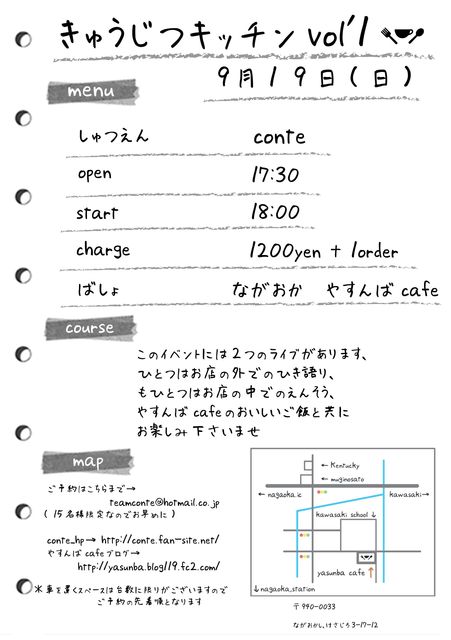 きゅうじつキッチン vol'1
9月19日(日)
menu
しゅつえん conte
open 17:30
start 18:00
charge 1200yen + 1order
ばしょ ながおか やすんば cafe
course
このイベントには2つのライブがあります、
ひとつはお店の外でのひき語り、
もひとつはお店の中でのえんそう、
やすんば cafeのおいしいご飯と共に
お楽しみ下さいませ
map
ご予約はこちらまで→
teamconte@hotmail.co.jp
(15名様限定なのでお早めに)
conte_hp→ http://conte.fan-site.net/
やすんば cafeブログ→
http://yasunba.blog119.fc2.com/
※車を置くスペースは台数に限りがございますので
ご予約の先着順となります
← Kentucky
← muginosato
← nagaoka.ic
kawasaki→
kawasaki school ↓
yasunba cafe ↑
↓nagaoka_station
〒940-0033
ながおかし、けさじろ3-17-12